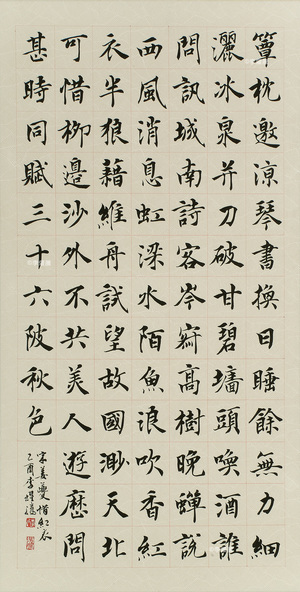 簟枕邀涼琴書換日睡餘無力細
灑冰泉并刀破甘碧墻頭喚酒誰
問訊城南詩客岑寂高樹晚蟬說
西風消息虹梁水陌魚浪吹香紅
衣半狼藉維舟試望故國渺天北
可惜柳邊沙外不共美人遊歷問
甚時同賦三十六陂秋色
宋姜夔惜紅衣
乙酉李